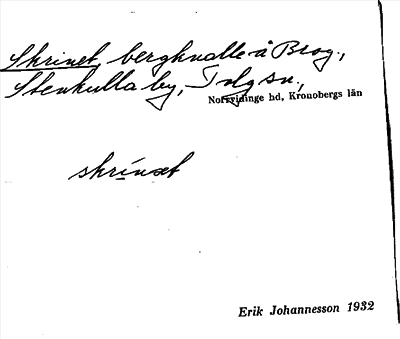 Skrinet, bergknalle å Brog.,
Stenkulla by, Tolg sn.,
Norrvidinge hd, Kronobergs län
skrínæt
Erik Johannesson 1932